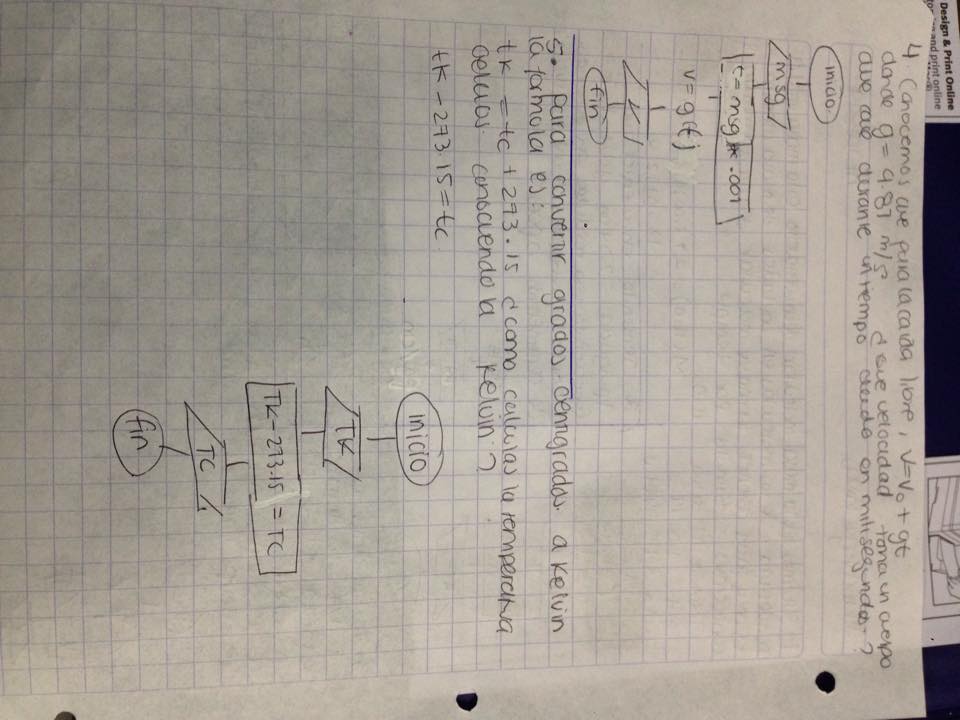 Design & Print Online
and print online
4. Conocemos que para la caida libre, v=v₀ + gt
donde g= 9.81 m/s² ¿que velocidad toma un cuerpo
que cae durante un tiempo dado en milisegundos.?
inicio
msg
t = msg * .001
v = g(t)
V
fin
5. para convertir grados. centigrados a kelvin
la formula es:
tk = tc + 273.15 ¿como calculas la temperatura
celcios conociendo la kelvin?
tk - 273.15 = tc
inicio
TK
TK - 273.15 = TC
TC
fin